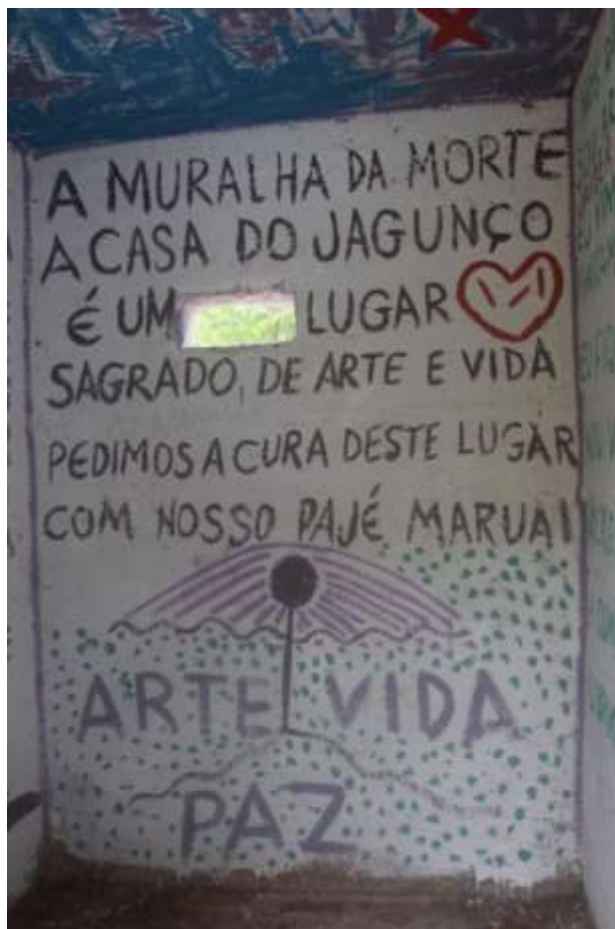 A MURALHA DA MORTE
A CASA DO JAGUNÇO
É UM LUGAR
SAGRADO, DE ARTE E VIDA
PEDIMOS A CURA DESTE LUGAR
COM NOSSO PAJÉ MARUAI
ARTE VIDA
PAZ